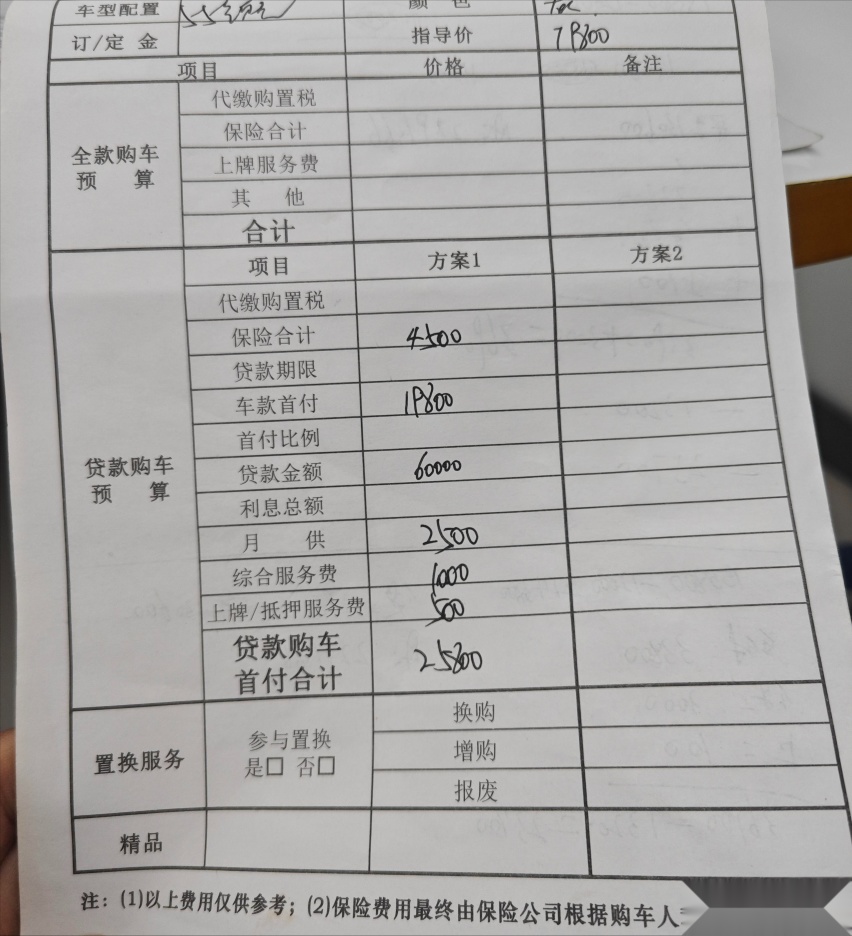 车型配置 颜 色
订/定 金 指导价 79800
项目 价格 备注
全款购车
预 算
代缴购置税
保险合计
上牌服务费
其 他
合计
贷款购车
预 算
项目 方案1 方案2
代缴购置税
保险合计 4500
贷款期限
车款首付 19800
首付比例
贷款金额 60000
利息总额
月 供 2500
综合服务费 1000
上牌/抵押服务费 500
贷款购车
首付合计 25800
置换服务
参与置换
是□ 否□
换购
增购
报废
精品
注：(1)以上费用仅供参考；(2)保险费用最终由保险公司根据购车人